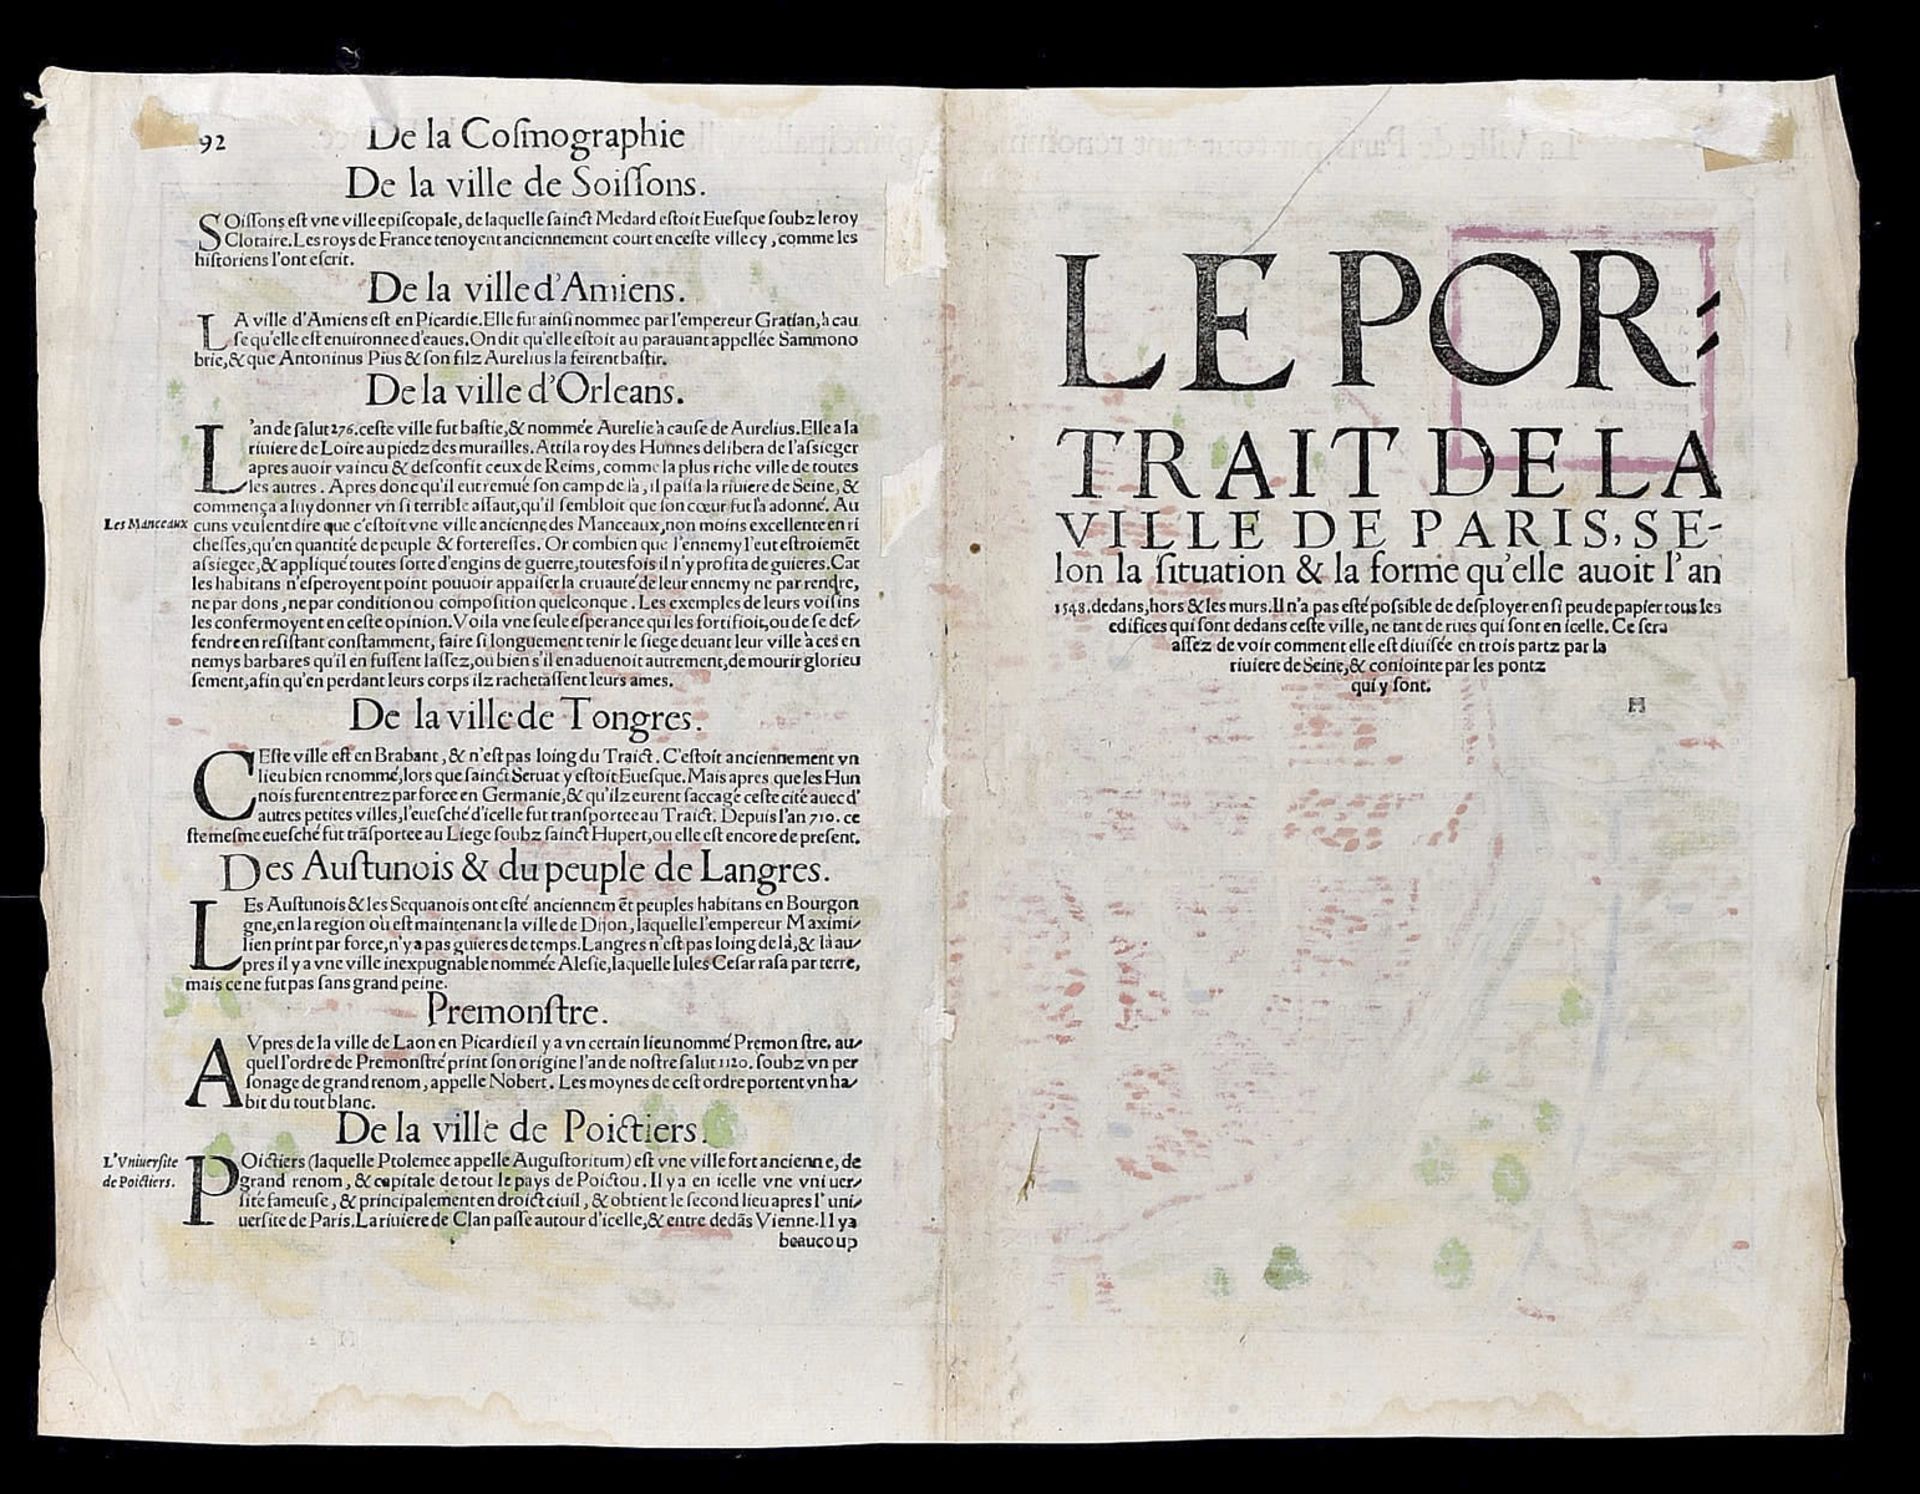 92 De la Coſmographie
De la ville de Soiſſons.
SOiſſons eſt vne ville epiſcopale, de laquelle ſainct Medard eſtoit Eueſque ſoubz le roy
Clotaire. Les roys de France tenoyent anciennement court en ceſte ville cy, comme les
hiſtoriens l'ont eſcrit.
De la ville d'Amiens.
LA ville d'Amiens eſt en Picardie. Elle fut ainſi nommee par l'empereur Gratian, à cau
ſe qu'elle eſt enuironnee d'eaues. On dit qu'elle eſtoit au parauant appellée Sammono
brie, & que Antoninus Pius & ſon filz Aurelius la feirent baſtir.
De la ville d'Orleans.
L'an de ſalut 276. ceſte ville fut baſtie, & nommée Aurelie à cauſe de Aurelius. Elle a la
riuiere de Loire au piedz des murailles. Attila roy des Hunnes delibera de l'aſsieger
apres auoir vaincu & deſconfit ceux de Reims, comme la plus riche ville de toutes
les autres. Apres donc qu'il eut remué ſon camp de là, il paſſa la riuiere de Seine, &
commença a luy donner vn ſi terrible aſſaut, qu'il ſembloit que ſon cœur fut là adonné. Au
Les Manceaux cuns veulent dire que c'eſtoit vne ville ancienne des Manceaux, non moins excellente en ri
cheſſes, qu'en quantité de peuple & fortereſſes. Or combien que l'ennemy l'eut eſtroiemēt
aſsiegee, & appliqué toutes ſorte d'engins de guerre, toutesfois il n'y profita de guieres. Car
les habitans n'eſperoyent point pouuoir appaiſer la cruauté de leur ennemy ne par rendre,
ne par dons, ne par condition ou compoſition quelconque. Les exemples de leurs voiſins
les confermoyent en ceſte opinion. Voila vne ſeule eſperance qui les fortifioit, ou de ſe def-
fendre en reſiſtant conſtamment, faire ſi longuement tenir le ſiege deuant leur ville à ces en
nemys barbares qu'il en fuſſent laſſez, ou bien s'il en aduenoit autrement, de mourir glorieu
ſement, afin qu'en perdant leurs corps ilz rachetaſſent leurs ames.
De la ville de Tongres.
CEſte ville eſt en Brabant, & n'eſt pas loing du Traict. C'eſtoit anciennement vn
lieu bien renommé, lors que ſainct Seruat y eſtoit Eueſque. Mais apres que les Hun
nois furent entrez par force en Germanie, & qu'ilz eurent ſaccagé ceſte cité auec d'
autres petites villes, l'eueſché d'icelle fut tranſportee au Traict. Depuis l'an 710. ce
ſte meſme eueſché fut trāſportee au Liege ſoubz ſainct Hupert, ou elle eſt encore de preſent.
Des Auſtunois & du peuple de Langres.
LEs Auſtunois & les Sequanois ont eſté anciennemēt peuples habitans en Bourgon
gne, en la region où eſt maintenant la ville de Dijon, laquelle l'empereur Maximi-
lien print par force, n'y a pas guieres de temps. Langres n'eſt pas loing de là, & là au-
pres il y a vne ville inexpugnable nommée Aleſie, laquelle Iules Ceſar raſa par terre,
mais ce ne fut pas ſans grand peine.
Premonſtre.
AVpres de la ville de Laon en Picardie il y a vn certain lieu nommé Premonſtre, au-
quel l'ordre de Premonſtré print ſon origine l'an de noſtre ſalut 1120. ſoubz vn per
ſonage de grand renom, appelle Nobert. Les moynes de ceſt ordre portent vn ha-
bit du tout blanc.
De la ville de Poictiers.
L'Vniuerſite
de Poictiers.
POictiers (laquelle Ptolemee appelle Auguſtoritum) eſt vne ville fort ancienne, de
grand renom, & capitale de tout le pays de Poictou. Il y a en icelle vne vniuer-
ſité fameuſe, & principalement en droict ciuil, & obtient le ſecond lieu apres l'vni-
uerſite de Paris. La riuiere de Clan paſſe autour d'icelle, & entre dedās Vienne. Il y a
beaucoup
LE POR-
TRAIT DE LA
VILLE DE PARIS, SE-
lon la ſituation & la forme qu'elle auoit l'an
1548. dedans, hors & les murs. Il n'a pas eſté poſsible de deſployer en ſi peu de papier tous les
edifices qui ſont dedans ceſte ville, ne tant de rues qui ſont en icelle. Ce ſera
aſſez de voir comment elle eſt diuiſée en trois partz par la
riuiere de Seine, & coniointe par les pontz
qui y ſont.